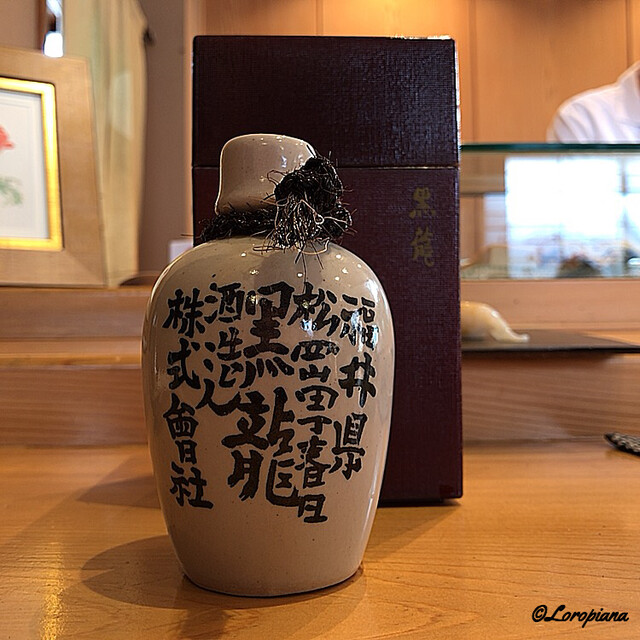 福井県
松岡町春日
黒龍
酒造
株式會社
黒龍
©Loropiana